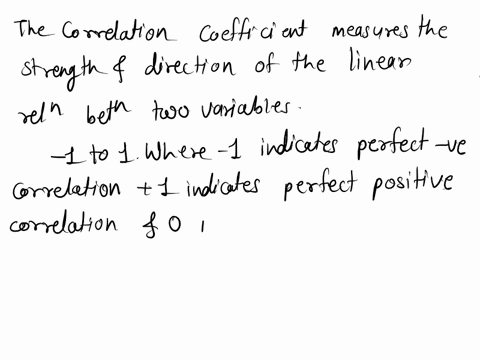 The Correlation Coefficient measures the
strength & direction of the linear
relⁿ betⁿ two variables.
-1 to 1. Where -1 indicates perfect -ve
correlation +1 indicates perfect positive
correlation & 0